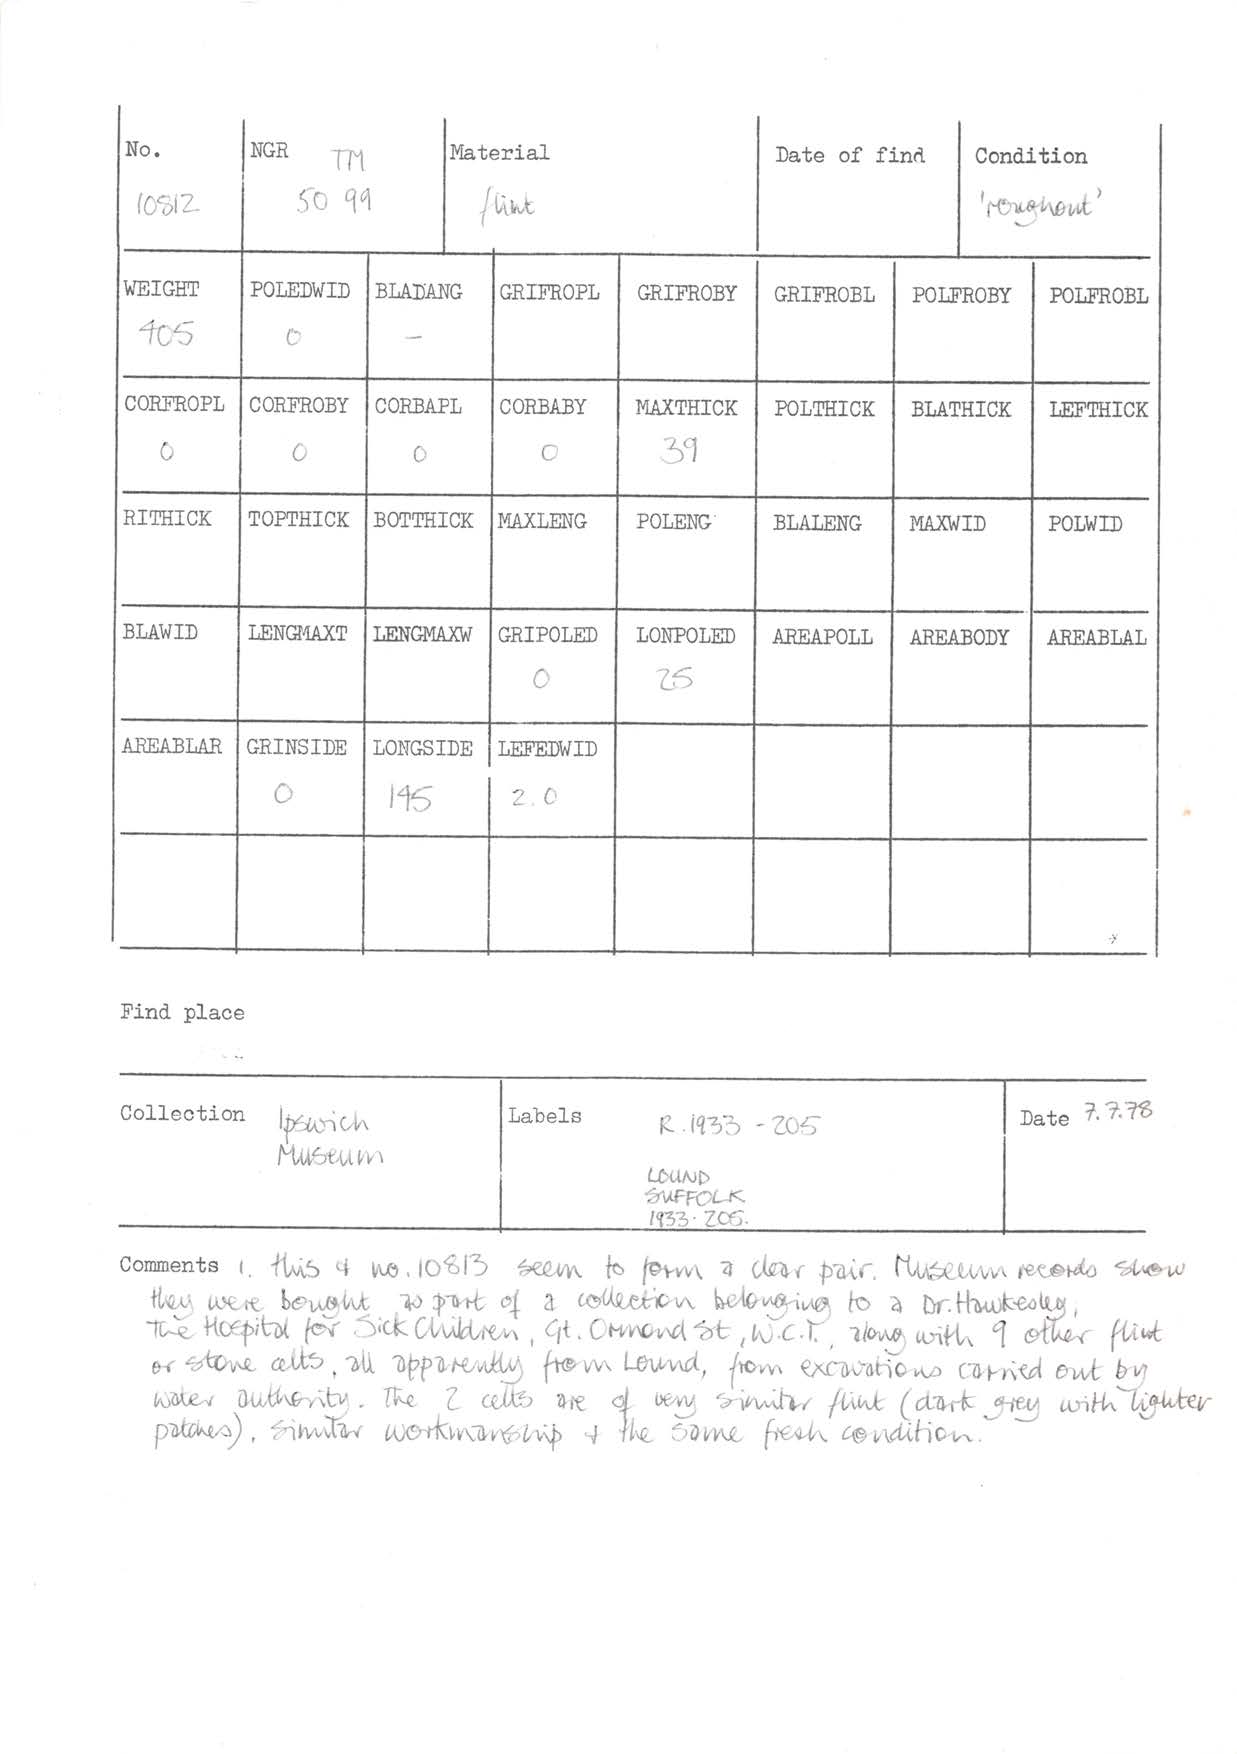 No. NGR TM Material Date of find Condition
10812 50 99 flint 'roughout'
WEIGHT POLEDWID BLADANG GRIFROPL GRIFROBY GRIFROBL POLFROBY POLFROBL
405 0 –
CORFROPL CORFROBY CORBAPL CORBABY MAXTHICK POLTHICK BLATHICK LEFTHICK
0 0 0 0 39
RITHICK TOPTHICK BOTTHICK MAXLENG POLENG BLALENG MAXWID POLWID
BLAWID LENGMAXT LENGMAXW GRIPOLED LONPOLED AREAPOLL AREABODY AREABLAL
0 25
AREABLAR GRINSIDE LONGSIDE LEFEDWID
0 145 2.0
Find place
Collection Ipswich Museum
Labels R.1933 - 205
LOUND
SUFFOLK
1933·205.
Date 7.7.78
Comments 1. this & no.10813 seem to form a clear pair. Museum records show
they were bought as part of a collection belonging to a Dr. Hawkesley,
The Hospital for Sick Children, Gt. Ormond St, W.C.1., along with 9 other flint
or stone celts, all apparently from Lound, from excavations carried out by
water authority. The 2 celts are of very similar flint (dark grey with lighter
patches), similar workmanship & the same fresh condition.